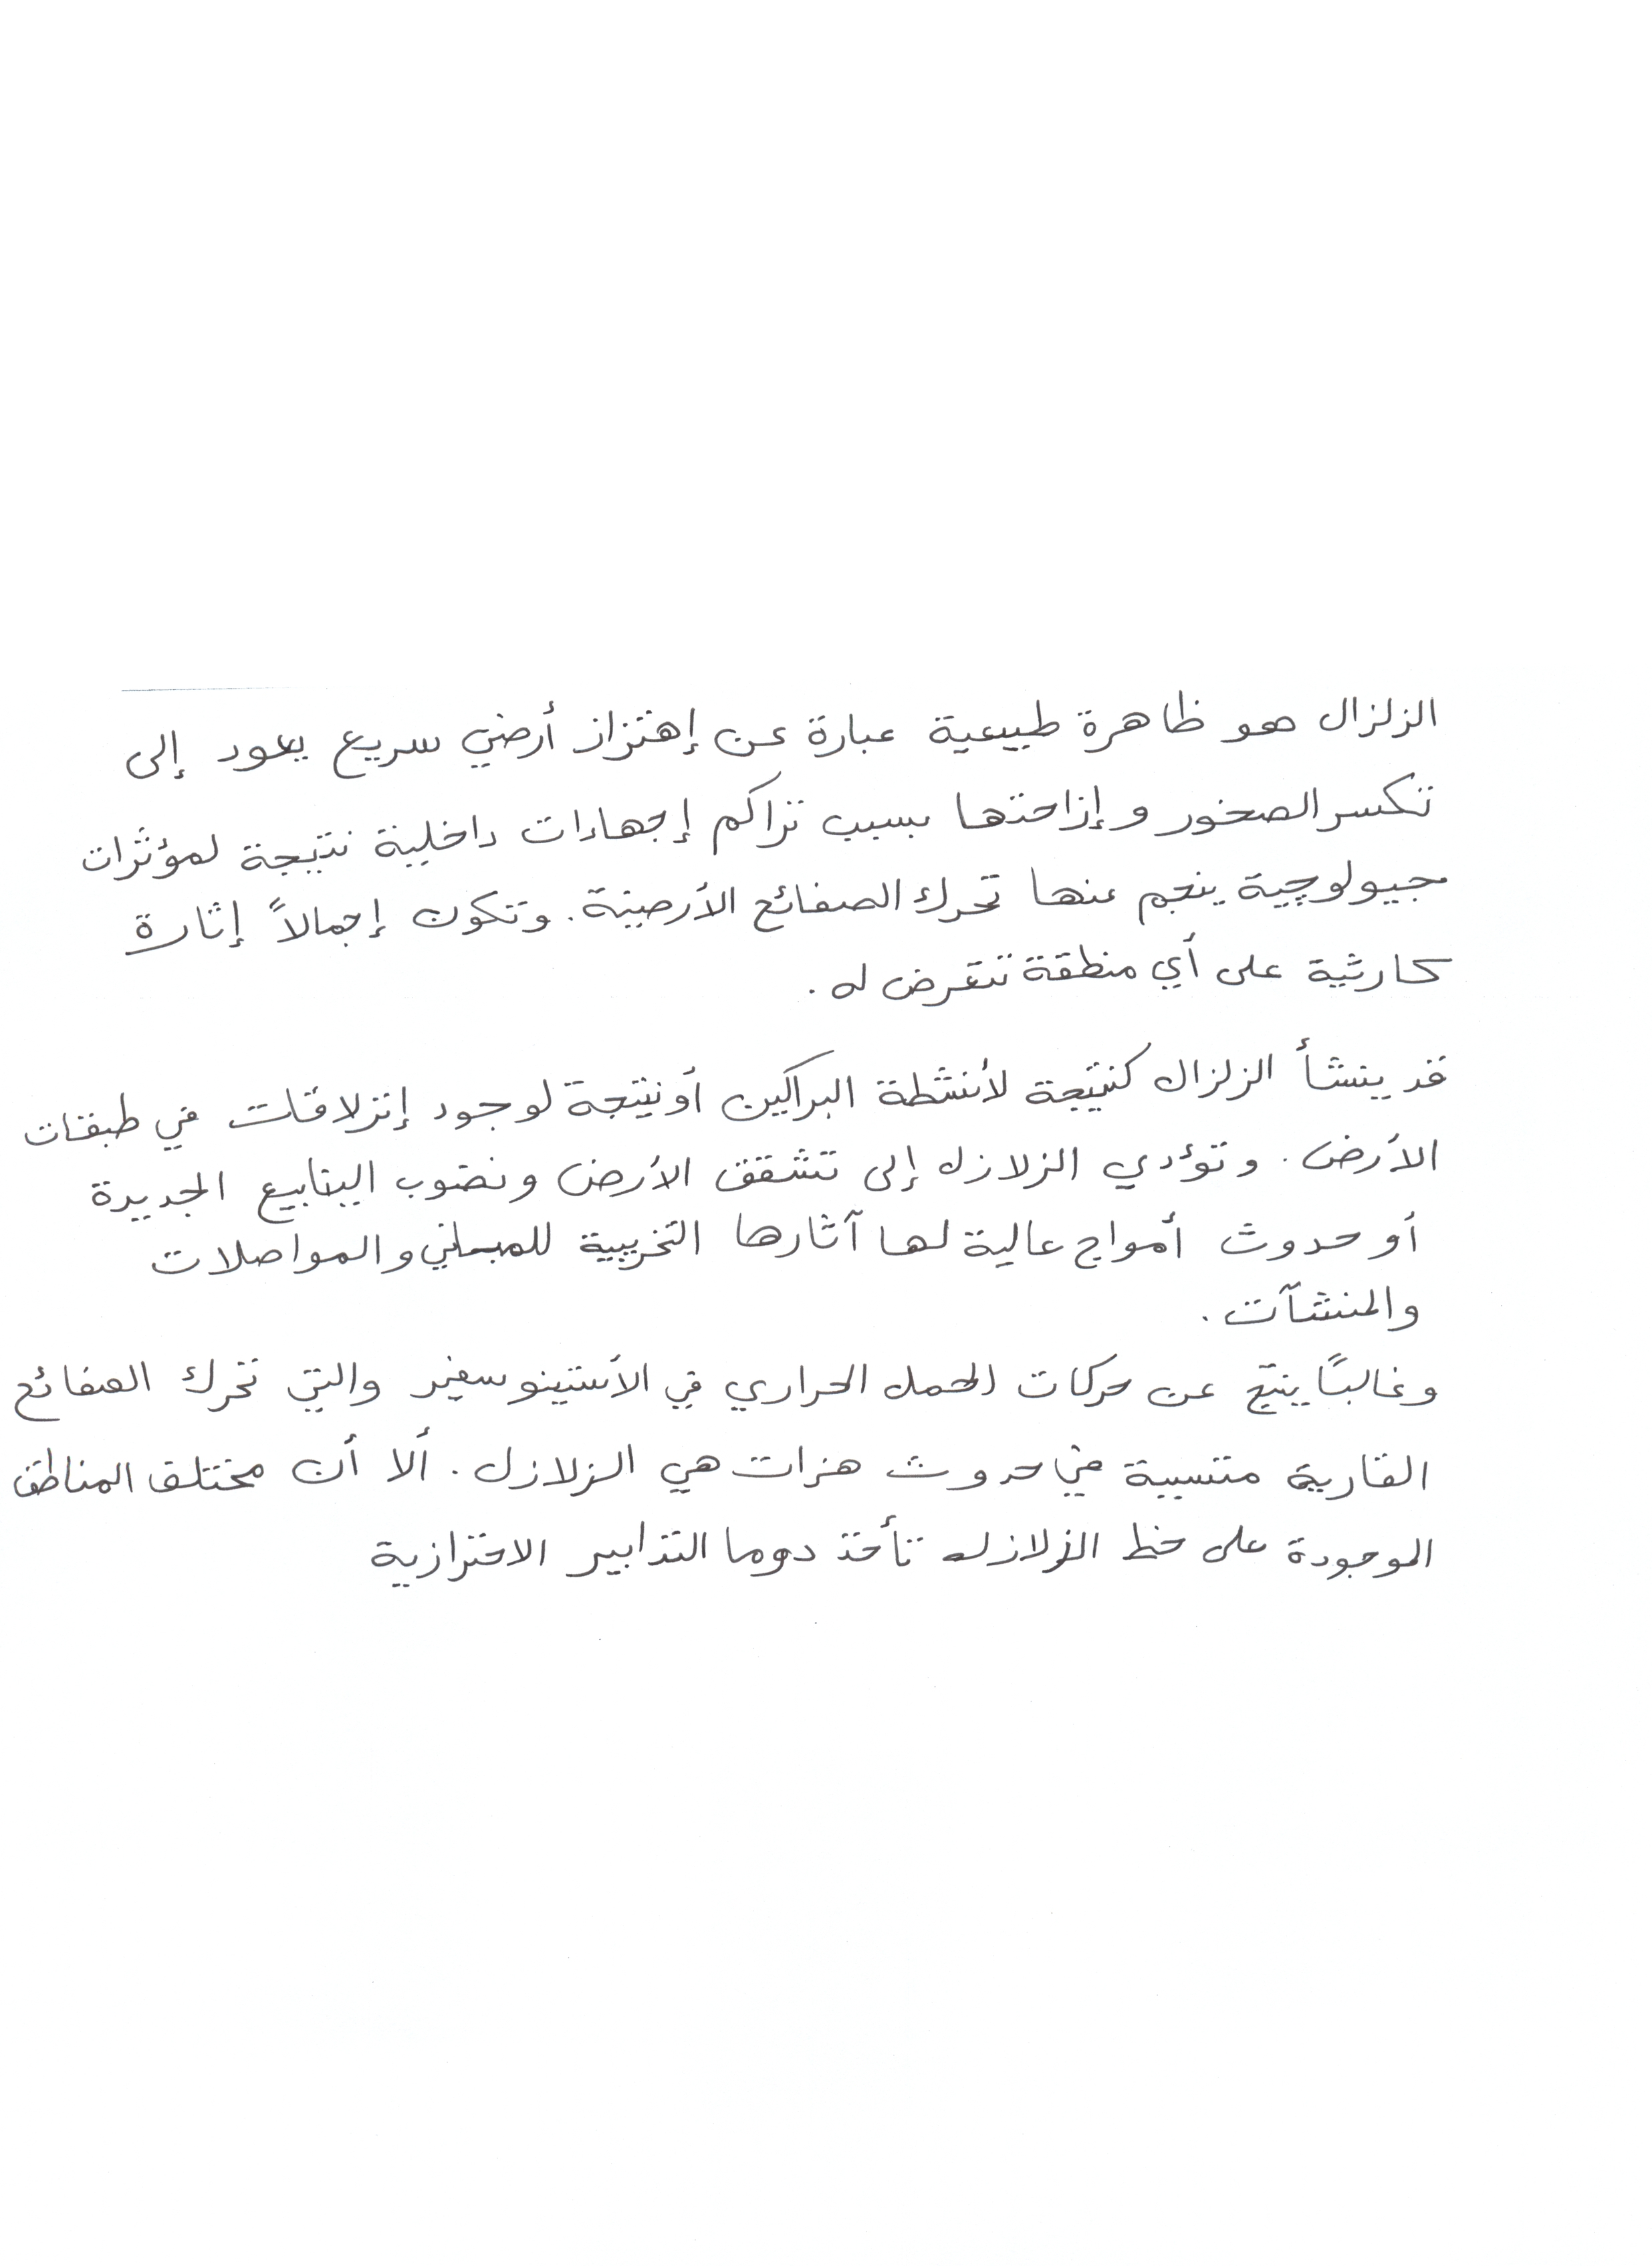 الزلزال هو ظاهرة طبيعية عبارة عن إهتزاز أرضي سريع يعود إلى
تكسر الصخور وإزاحتها بسبب تراكم إجهادات داخلية نتيجة لمؤثرات
جيولوچية ينجم عنها تحرك الصفائح الأرضية. وتكون إجمالاً إثارة
كارثية على أي منطقة تتعرض له.
قد ينشأ الزلزال كنتيجة لأنشطة البراكين أو نتيجة لوجود إنزلاقات في طبقات
الأرض. وتؤدي الزلازل إلى تشقق الأرض ونضوب الينابيع الجديدة
أو حدوث أمواج عالية لها آثارها التخريبية للمباني والمواصلات
والمنشآت.
وغالبًا ينتج عن حركات الحمل الحراري في الأستينوسفير والتي تحرك الصفائح
القارية متسببة في حدوث هزات هي الزلازل. ألا أن مختلف المناطق
الموجودة على خط الزلازل تأخذ دوما التدابير الاحترازية